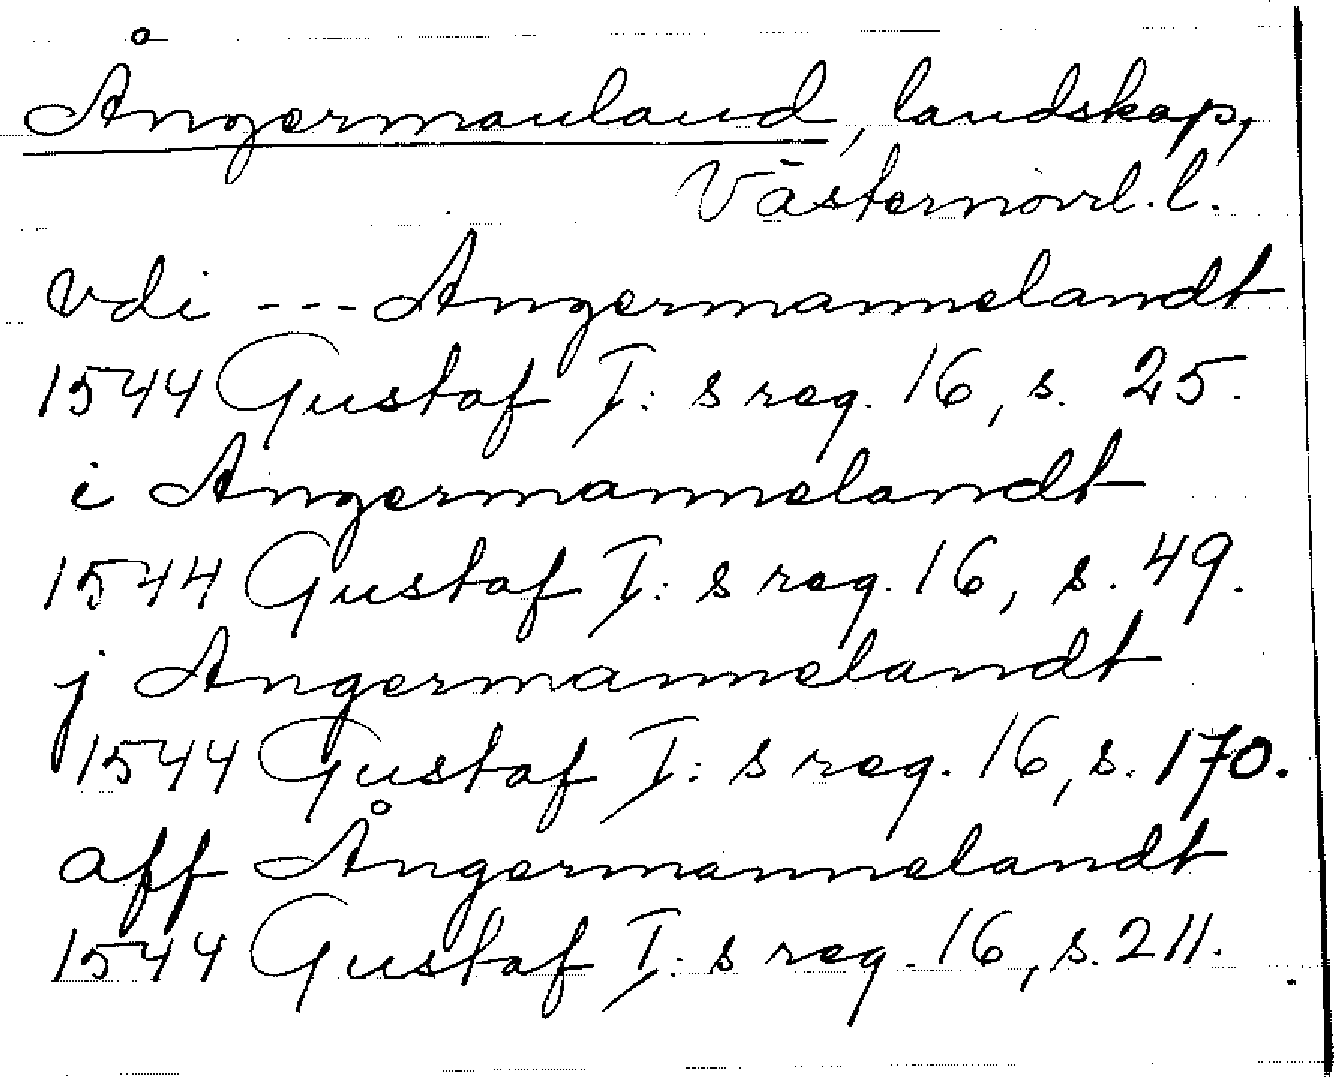 Ångermanland, landskap,
Västernorrl. l.
vdi --- Angermannelandt
1544 Gustaf I: s reg. 16, s. 25.
i Angermannelandt
1544 Gustaf I: s reg. 16, s. 49.
j Angermannelandt
1544 Gustaf I: s reg. 16, s. 170.
aff Ångermannelandt
1544 Gustaf I: s reg. 16, s. 211.